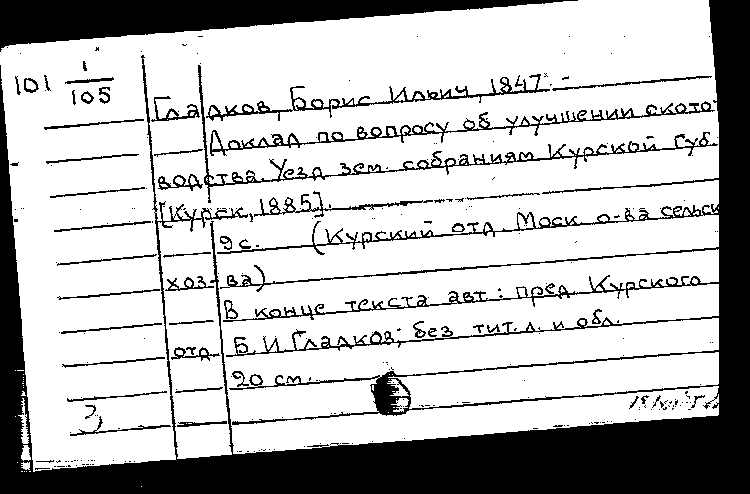 101 1/105
Гладков, Борис Ильич, 1847.-
Доклад по вопросу об улучшении ското-
водства. Уезд. зем. собраниям Курской губ.
[Курск, 1885].
9 с. (Курский отд. Моск о-ва сельск
хоз-ва).
В конце текста авт: пред. Курского
отд. Б. И. Гладков; без тит. л. и обл.
20 см.